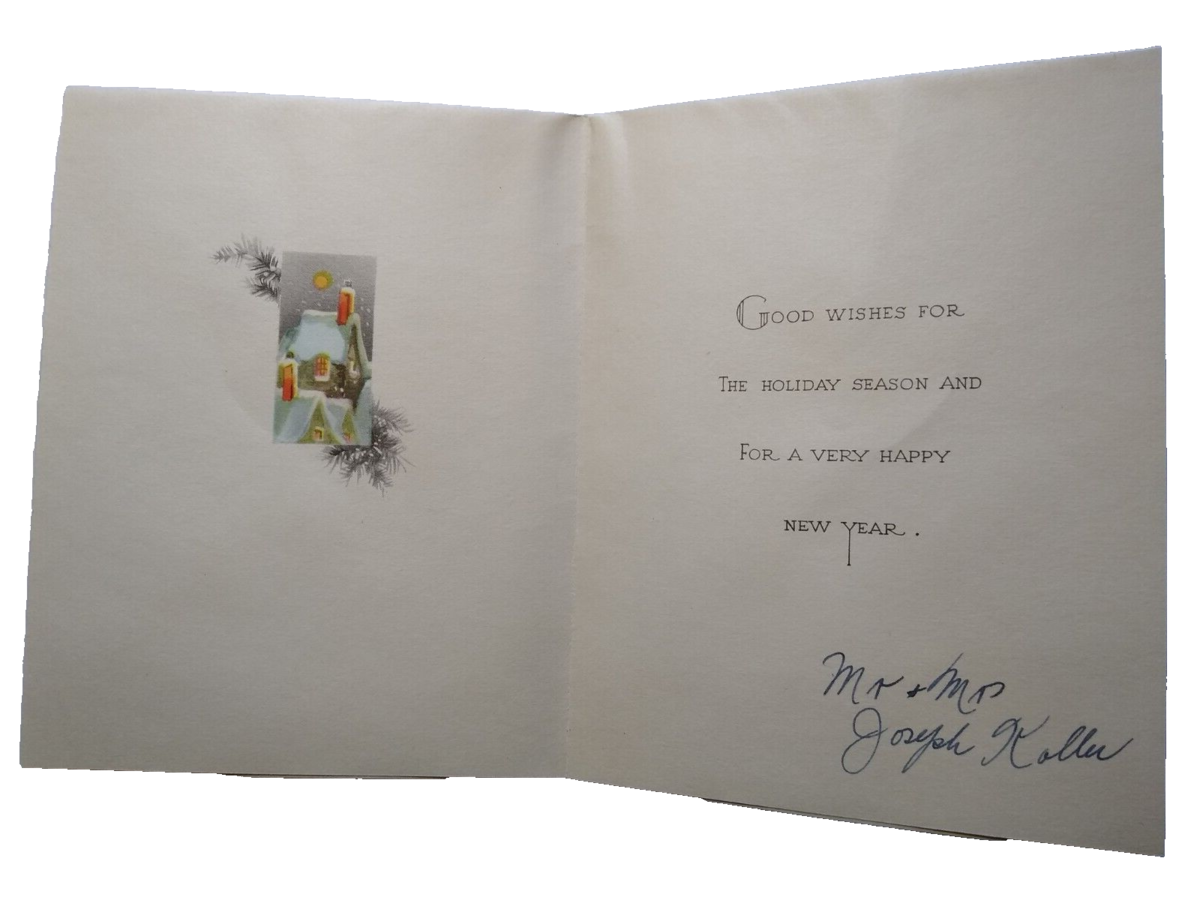 Good wishes for
The holiday season and
For a very happy
new year.
Mr + Mrs
Joseph Koller